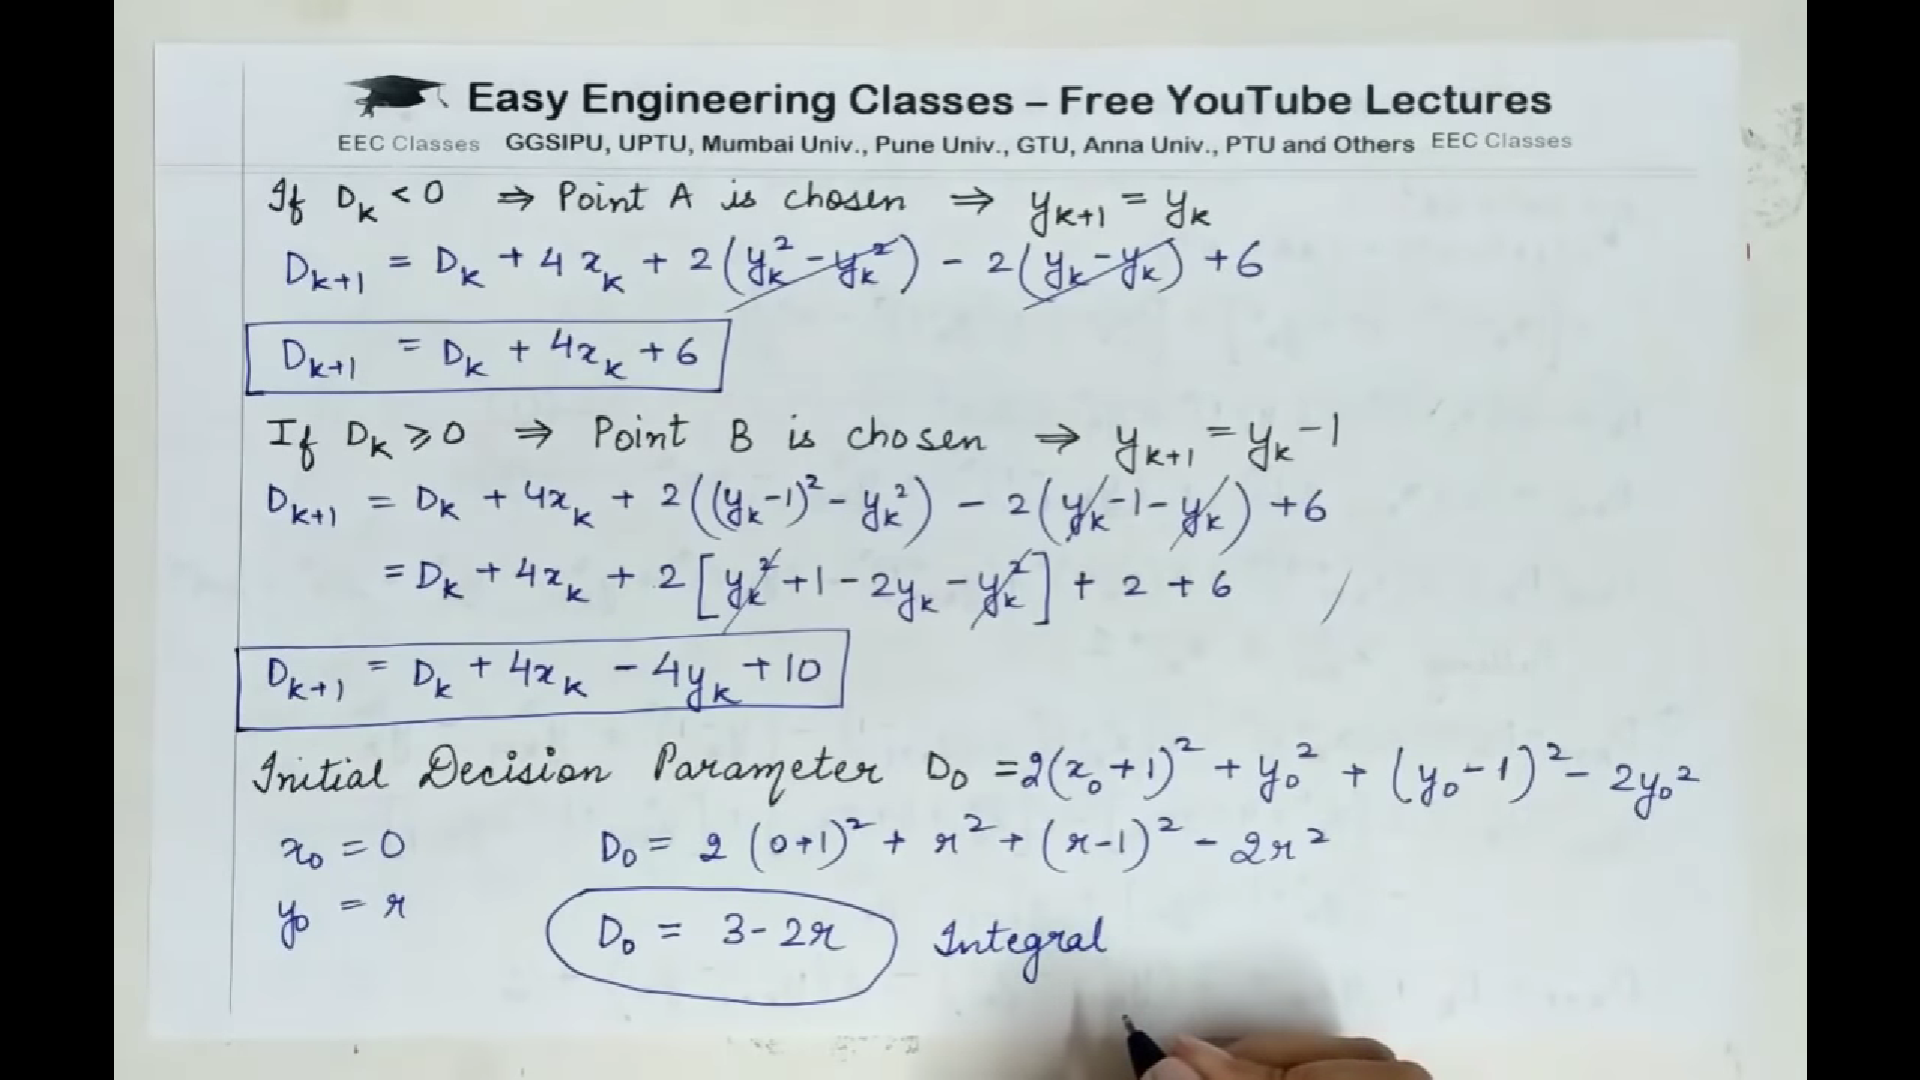 Easy Engineering Classes – Free YouTube Lectures
EEC Classes GGSIPU, UPTU, Mumbai Univ., Pune Univ., GTU, Anna Univ., PTU and Others EEC Classes
If Dₖ < 0 ⇒ Point A is chosen ⇒ yₖ₊₁ = yₖ
Dₖ₊₁ = Dₖ + 4xₖ + 2(yₖ² - yₖ²) - 2(yₖ - yₖ) + 6
Dₖ₊₁ = Dₖ + 4xₖ + 6
If Dₖ ⩾ 0 ⇒ Point B is chosen ⇒ yₖ₊₁ = yₖ - 1
Dₖ₊₁ = Dₖ + 4xₖ + 2((yₖ-1)² - yₖ²) - 2(yₖ - 1 - yₖ) + 6
= Dₖ + 4xₖ + 2[yₖ² + 1 - 2yₖ - yₖ²] + 2 + 6
Dₖ₊₁ = Dₖ + 4xₖ - 4yₖ + 10
Initial Decision Parameter D₀ = 2(x₀+1)² + y₀² + (y₀-1)² - 2y₀²
x₀ = 0 D₀ = 2(0+1)² + r² + (r-1)² - 2r²
y₀ = r
D₀ = 3 - 2r Integral